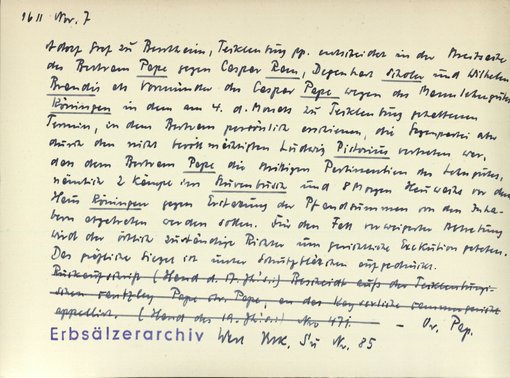 1611 Nov. 7
Adolf Graf zu Bentheim, Tecklenburg pp. entscheidet in der Streitsache
des Bertram Pape gegen Caspar Ram, Degenhart und Wilhelm
Brandis als Vormünder des Caspar Pape wegen des Mannlehngutes
Röningen in dem am 4. d. Monats zu Tecklenburg gehaltenen
Termin, in dem Bertram persönlich erschienen, die Gegenpartei aber
durch den nicht bevollmächtigten Ludwig Pistorius vertreten war,
dass dem Bertram Pape die strittigen Pertinentien des Lehngutes,
nämlich 2 Kämpe im und 8 Morgen Heuwachs vor dem
Haus Röningen gegen Erstattung der Pfandsummen von den Inha-
bern abgetreten werden sollen. Für den Fall verweigerter Abtretung
wird der örtlich zuständige Richter um gerichtliche Exekution gebeten.
Das gräfliche Siegel ist unter Schutzblättchen aufgedrückt.
Rückaufschrift (Hand d. 17. Jh's.:) Bescheidt auss der Tecklenburgi-
schen Pape Pape, an das Kayserliche Cammergericht
appellirt. (Hand des 19. Jh's.:) Nro 471. — Or. Pap.
Erbsälzerarchiv Werl Urk. Nr. 85